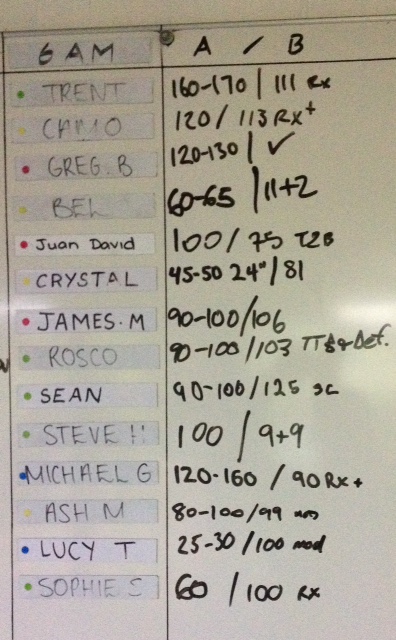 6 AM A / B
TRENT 160-170 | 111 Rx
CAMO 120 / 113 Rx+
GREG. B 120-130 | ✓
BEL 60-65 | 11+2
Juan David 100 / 75 T2B
CRYSTAL 45-50 24" / 81
JAMES. M 90-100/106
ROSCO 90-100/103 Def.
SEAN 90-100/125 sc
STEVE H 100 / 9+9
MICHAEL G 120-160 / 90 Rx +
ASH M 80-100/99
LUCY T 25-30/100 mod
SOPHIE S 60 / 100 Rx